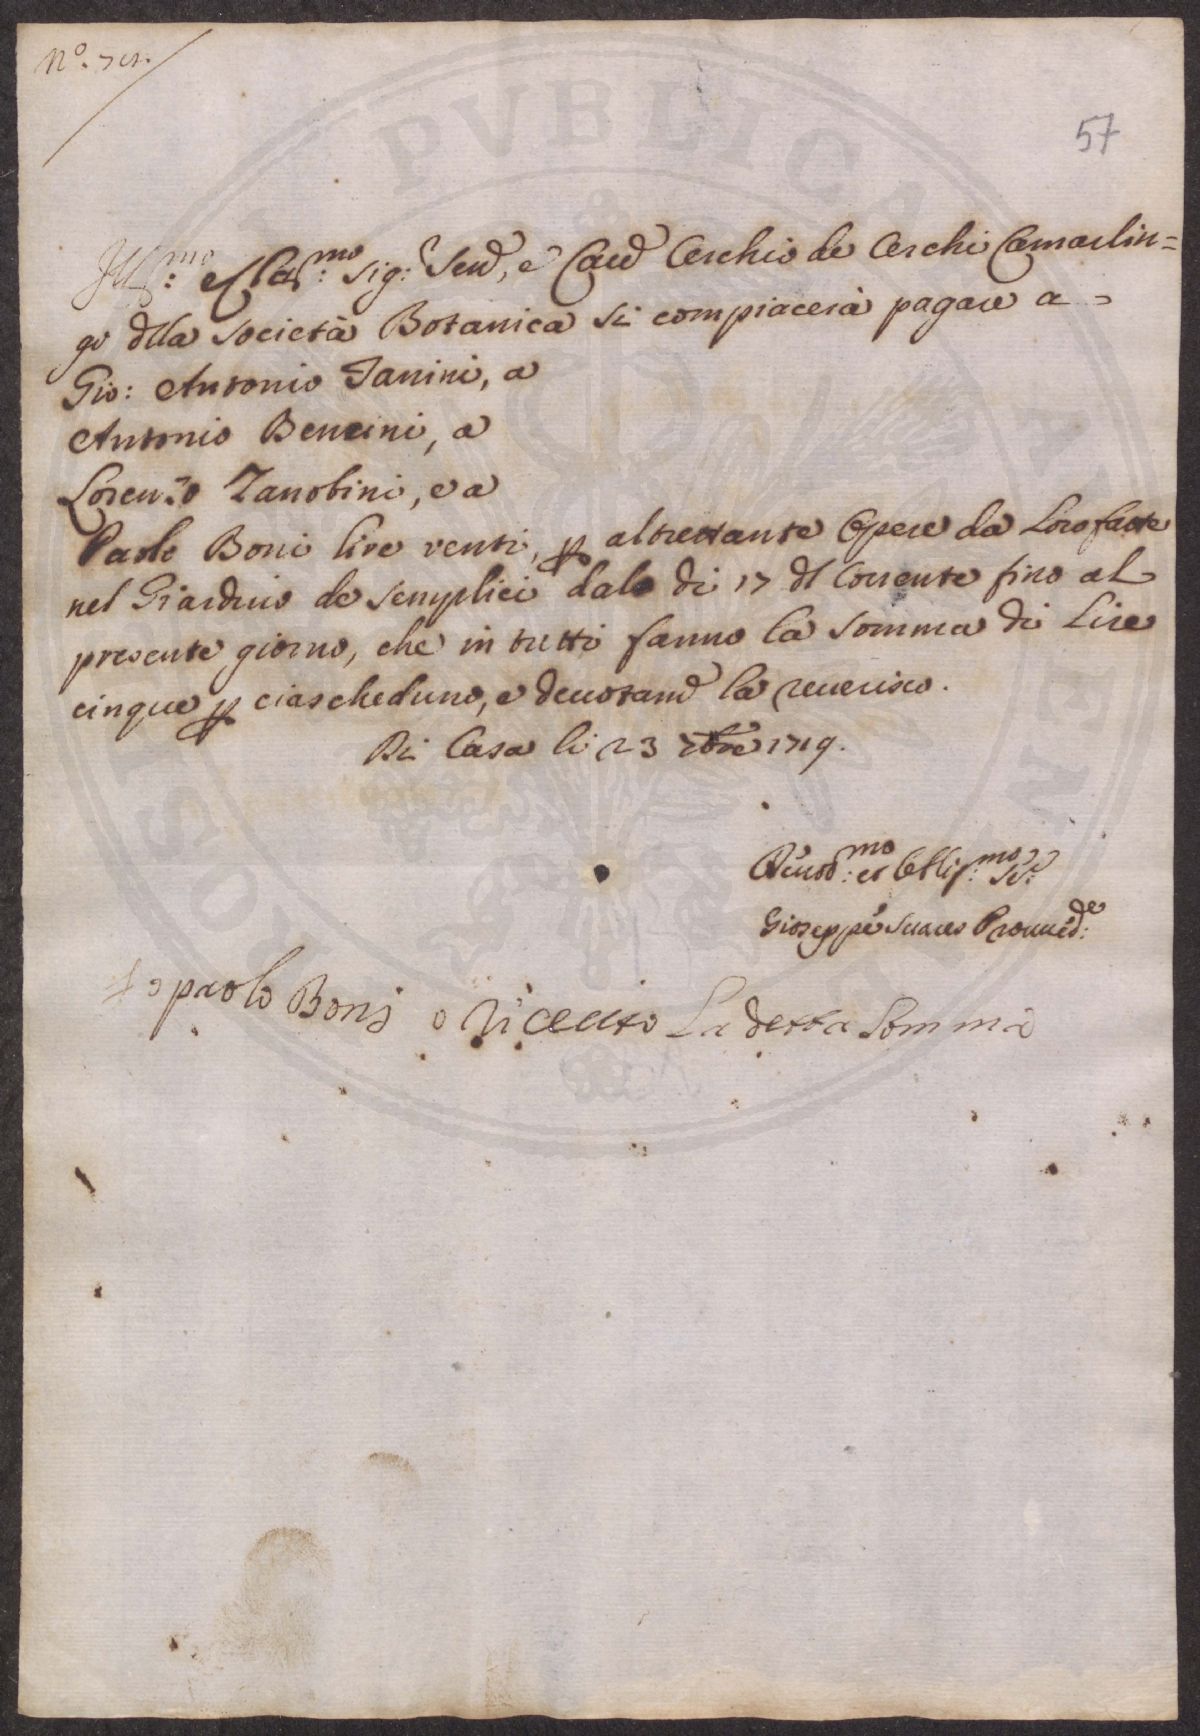 57
Ill:mo e Clar:mo Sig:r Send, e Caud Cerchio de Cerchi Camarlin=
go dlla Società Botanica si compiacerà pagare a
Gio: Antonio Janini, a
Antonio Bencini, a
Lorenzo Zanobini, e a
Paolo Boni lire venti, p altrettante Opere da Loro fatte
nel Giardino de Semplici dale di 17 dl Corrente fino al
presente giorno, che in tutti fanno la somma di Lire
cinque p ciascheduno, e deuotamd la reuerisco.
Di Casa li 23 7bre 1719.
Deuot:mo et Obblig:mo Se:
Gioseppe Suares Proued:re
Io paolo Boni o riceuto La detta Somma
PVBLICA